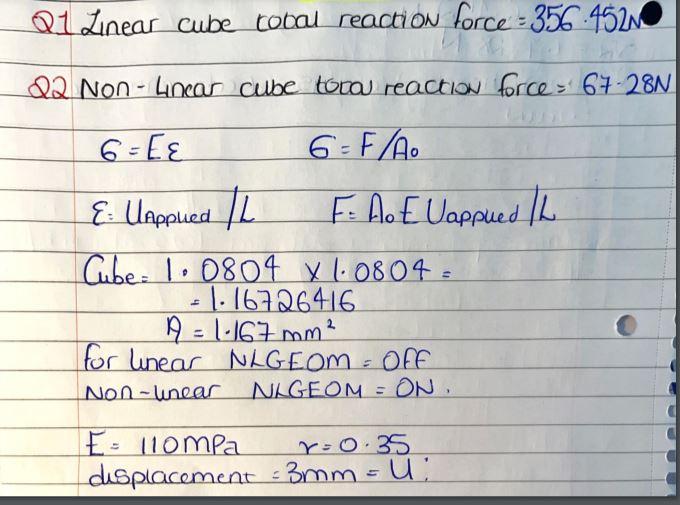 Q1 Linear cube total reaction force = 356.452N
Q2 Non-linear cube total reaction force = 67.28N
6 = Eε 6 = F/A₀
ε = UApplied /L F = A₀ E Uapplied /L
Cube = 1.0804 x 1.0804 =
= 1.16726416
A = 1.167 mm²
for linear NLGEOM = OFF
Non-linear NLGEOM = ON.
E = 110mPa r = 0.35
displacement = 3mm = U: